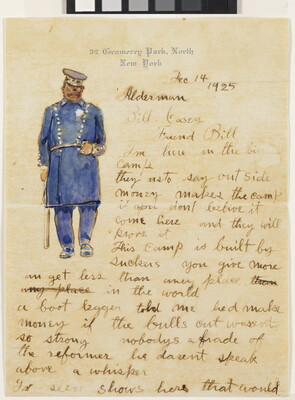 32 Gramercy Park, North
New York
Dec 14 1925
Alderman
Bill Casey
Friend Bill
I'm here in the bi
camp
they us to say out side
money makes the camp
if you don't believe it
come here and they will
prove it
This camp is built by
suckers you give more
an get less than any place than
any place in the world
a boot legger told me he'd make
money if the bulls out wasent
so strong nobodys afrade of
the reformer he dasent speak
above a whisper
I've seen shows here that would